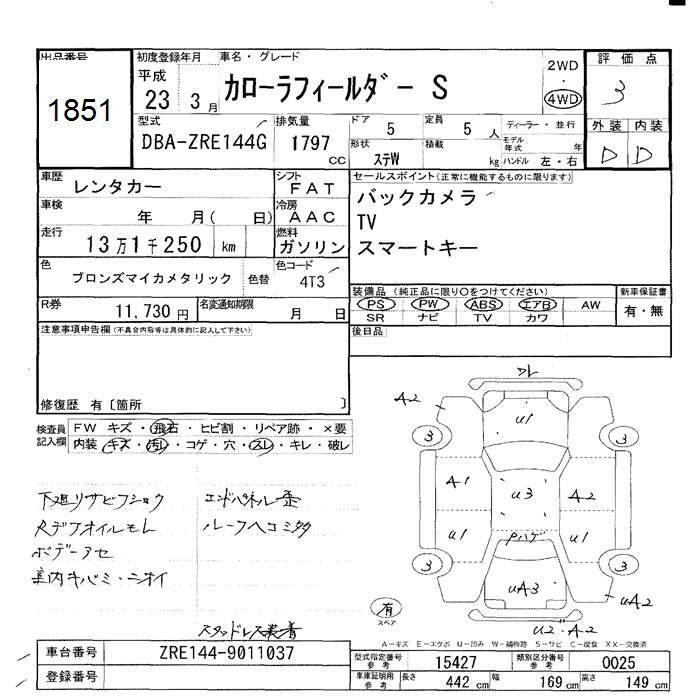 出品番号
1851
初度登録年月
平成
23 3月
車名・グレード
カローラフィールダー S
2WD
・
4WD
評価点
3
外装 内装
D D
型式
DBA-ZRE144G
排気量
1797 CC
ドア
5
定員
5 人
形状
ステW
積載
kg
ディーラー・並行
モデル年式 年
ハンドル 左・右
車歴
レンタカー
シフト
FAT
車検
年 月( 日)
冷房
AAC
走行
13万1千250 km
燃料
ガソリン
色
ブロンズマイカメタリック
色替
色コード
4T3
R券
11,730円
名変通知期限
月 日
セールスポイント(正常に機能するものに限ります)
バックカメラ
TV
スマートキー
装備品(純正品に限り○をつけてください)
PS PW ABS エアB AW
SR ナビ TV カワ
新車保証書
有・無
後日品
注意事項申告欄(不具合内容等は具体的に記入して下さい)
修復歴 有〔箇所 〕
検査員記入欄
FW キズ・飛石・ヒビ割・リペア跡・×要
内装 キズ・汚レ・コゲ・穴・スレ・キレ・破レ
下廻リサビフショク
Rデフオイルモレ
ボデーアセ
室内キバミ・ニオイ
エンドパネル歪
ルーフヘコミ多タ
スタッドレス装着
A2
U1
3 3
A1 U3 A2
U1 Pハゲ U1
3 3
UA3
UA2
U2・A2
有
スペア
A−キズ E−エクボ U−凹み W−補修跡 S−サビ C−腐食 XX−交換済
車台番号
ZRE144-9011037
登録番号
型式指定番号 参考
15427
類別区分番号 参考
0025
車庫証明用 参考
長さ 442 cm
幅 169 cm
高さ 149 cm